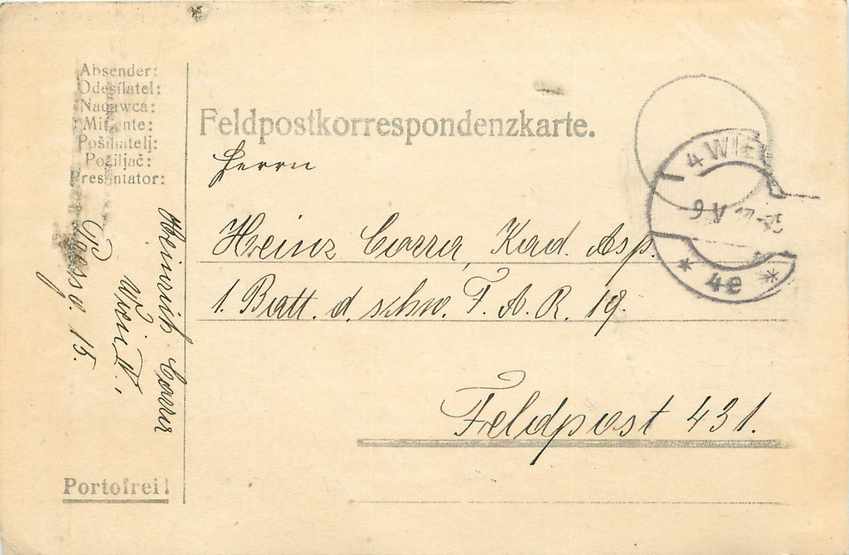 Absender:
Odesílatel:
Nadawca:
Mittente:
Pošiljatelj:
Pošiljač:
Presentator:
Feldpostkorrespondenzkarte.
Herrn
Heinz Carra, Kad. Asp.
1. Batt. d. schw. F. A. R. 19.
Feldpost 431.
Heinrich Carra
Wien
15.
Portofrei!
4 WIEN
9 V
* 4e *